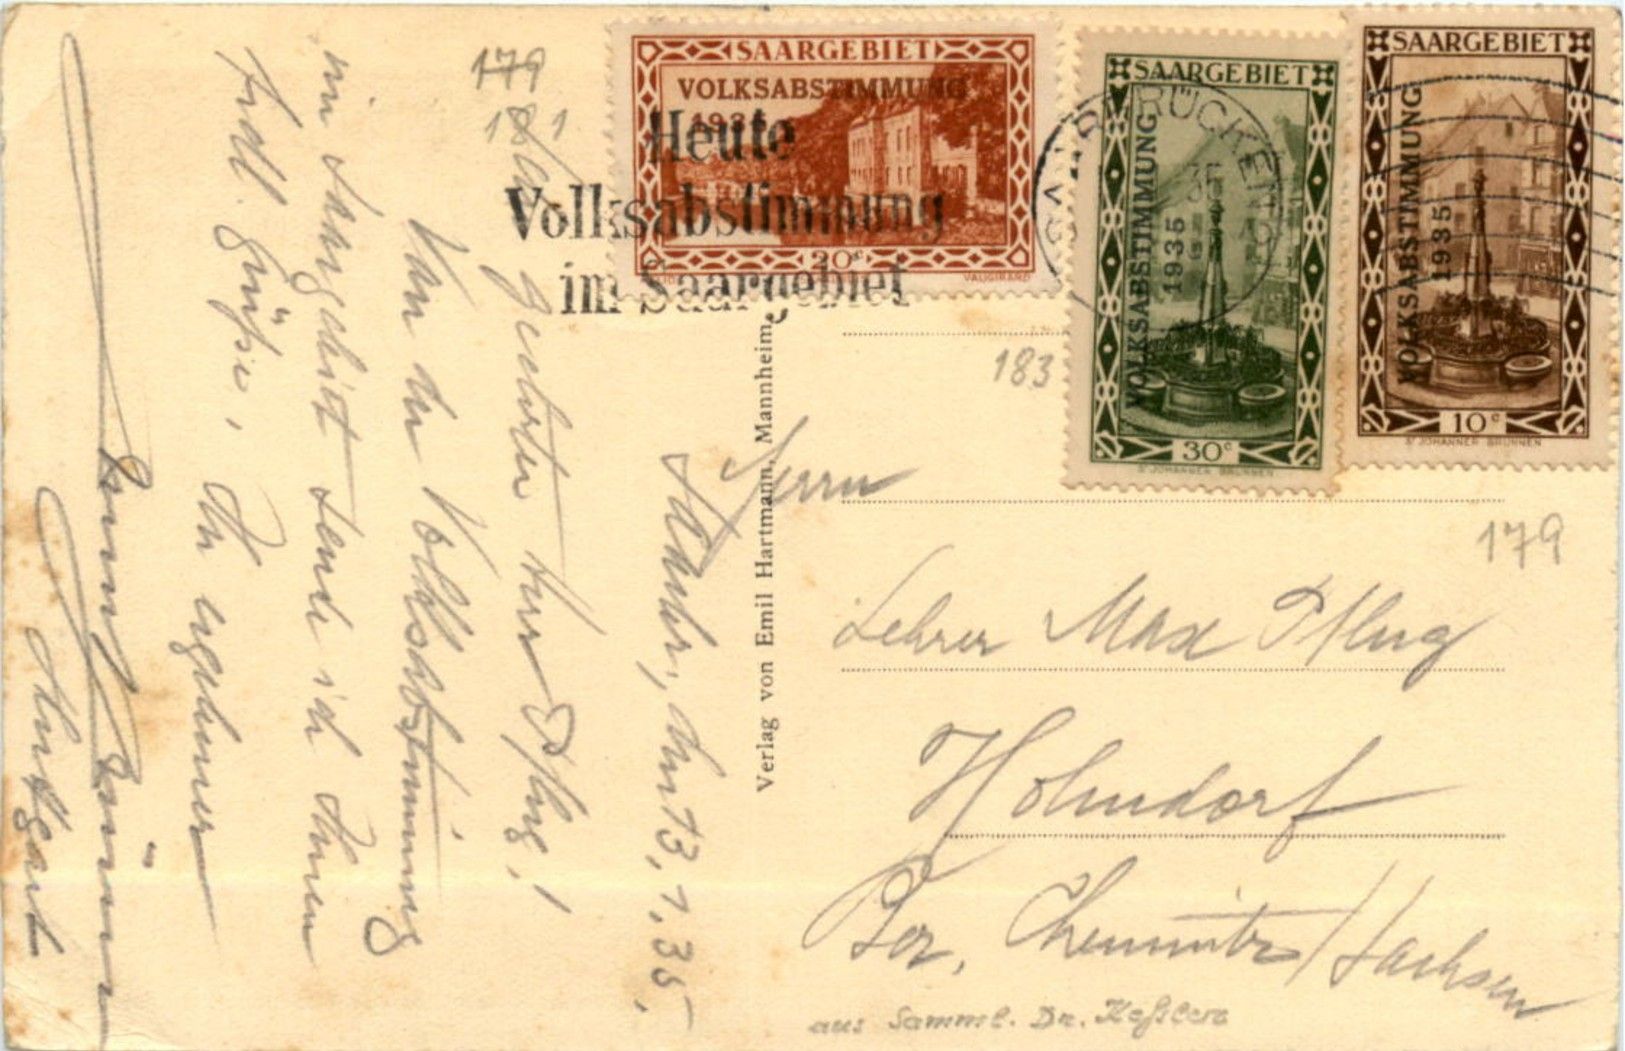 SAARGEBIET
VOLKSABSTIMMUNG
1935
20c
VAUGIRARD
SAARGEBIET
VOLKSABSTIMMUNG
1935
30c
ST JOHANNER BRUNNEN
SAARGEBIET
VOLKSABSTIMMUNG
1935
10c
ST JOHANNER BRUNNEN
Heute
Volksabstimmung
im Saargebiet
SAARBRÜCKEN 2
179
181
183
179
Verlag von Emil Hartmann, Mannheim.
13.1.35.
Sehr geehrter Herr Pflug!
Von der Volksabstimmung
im Saargebiet sende ich Ihnen
frdl. Grüsse, Ihr ergebener
Stuttgart
Herrn
Lehrer Max Pflug
Hohndorf
Bez. Chemnitz/Sachsen
aus Samml. Dr. Keßler